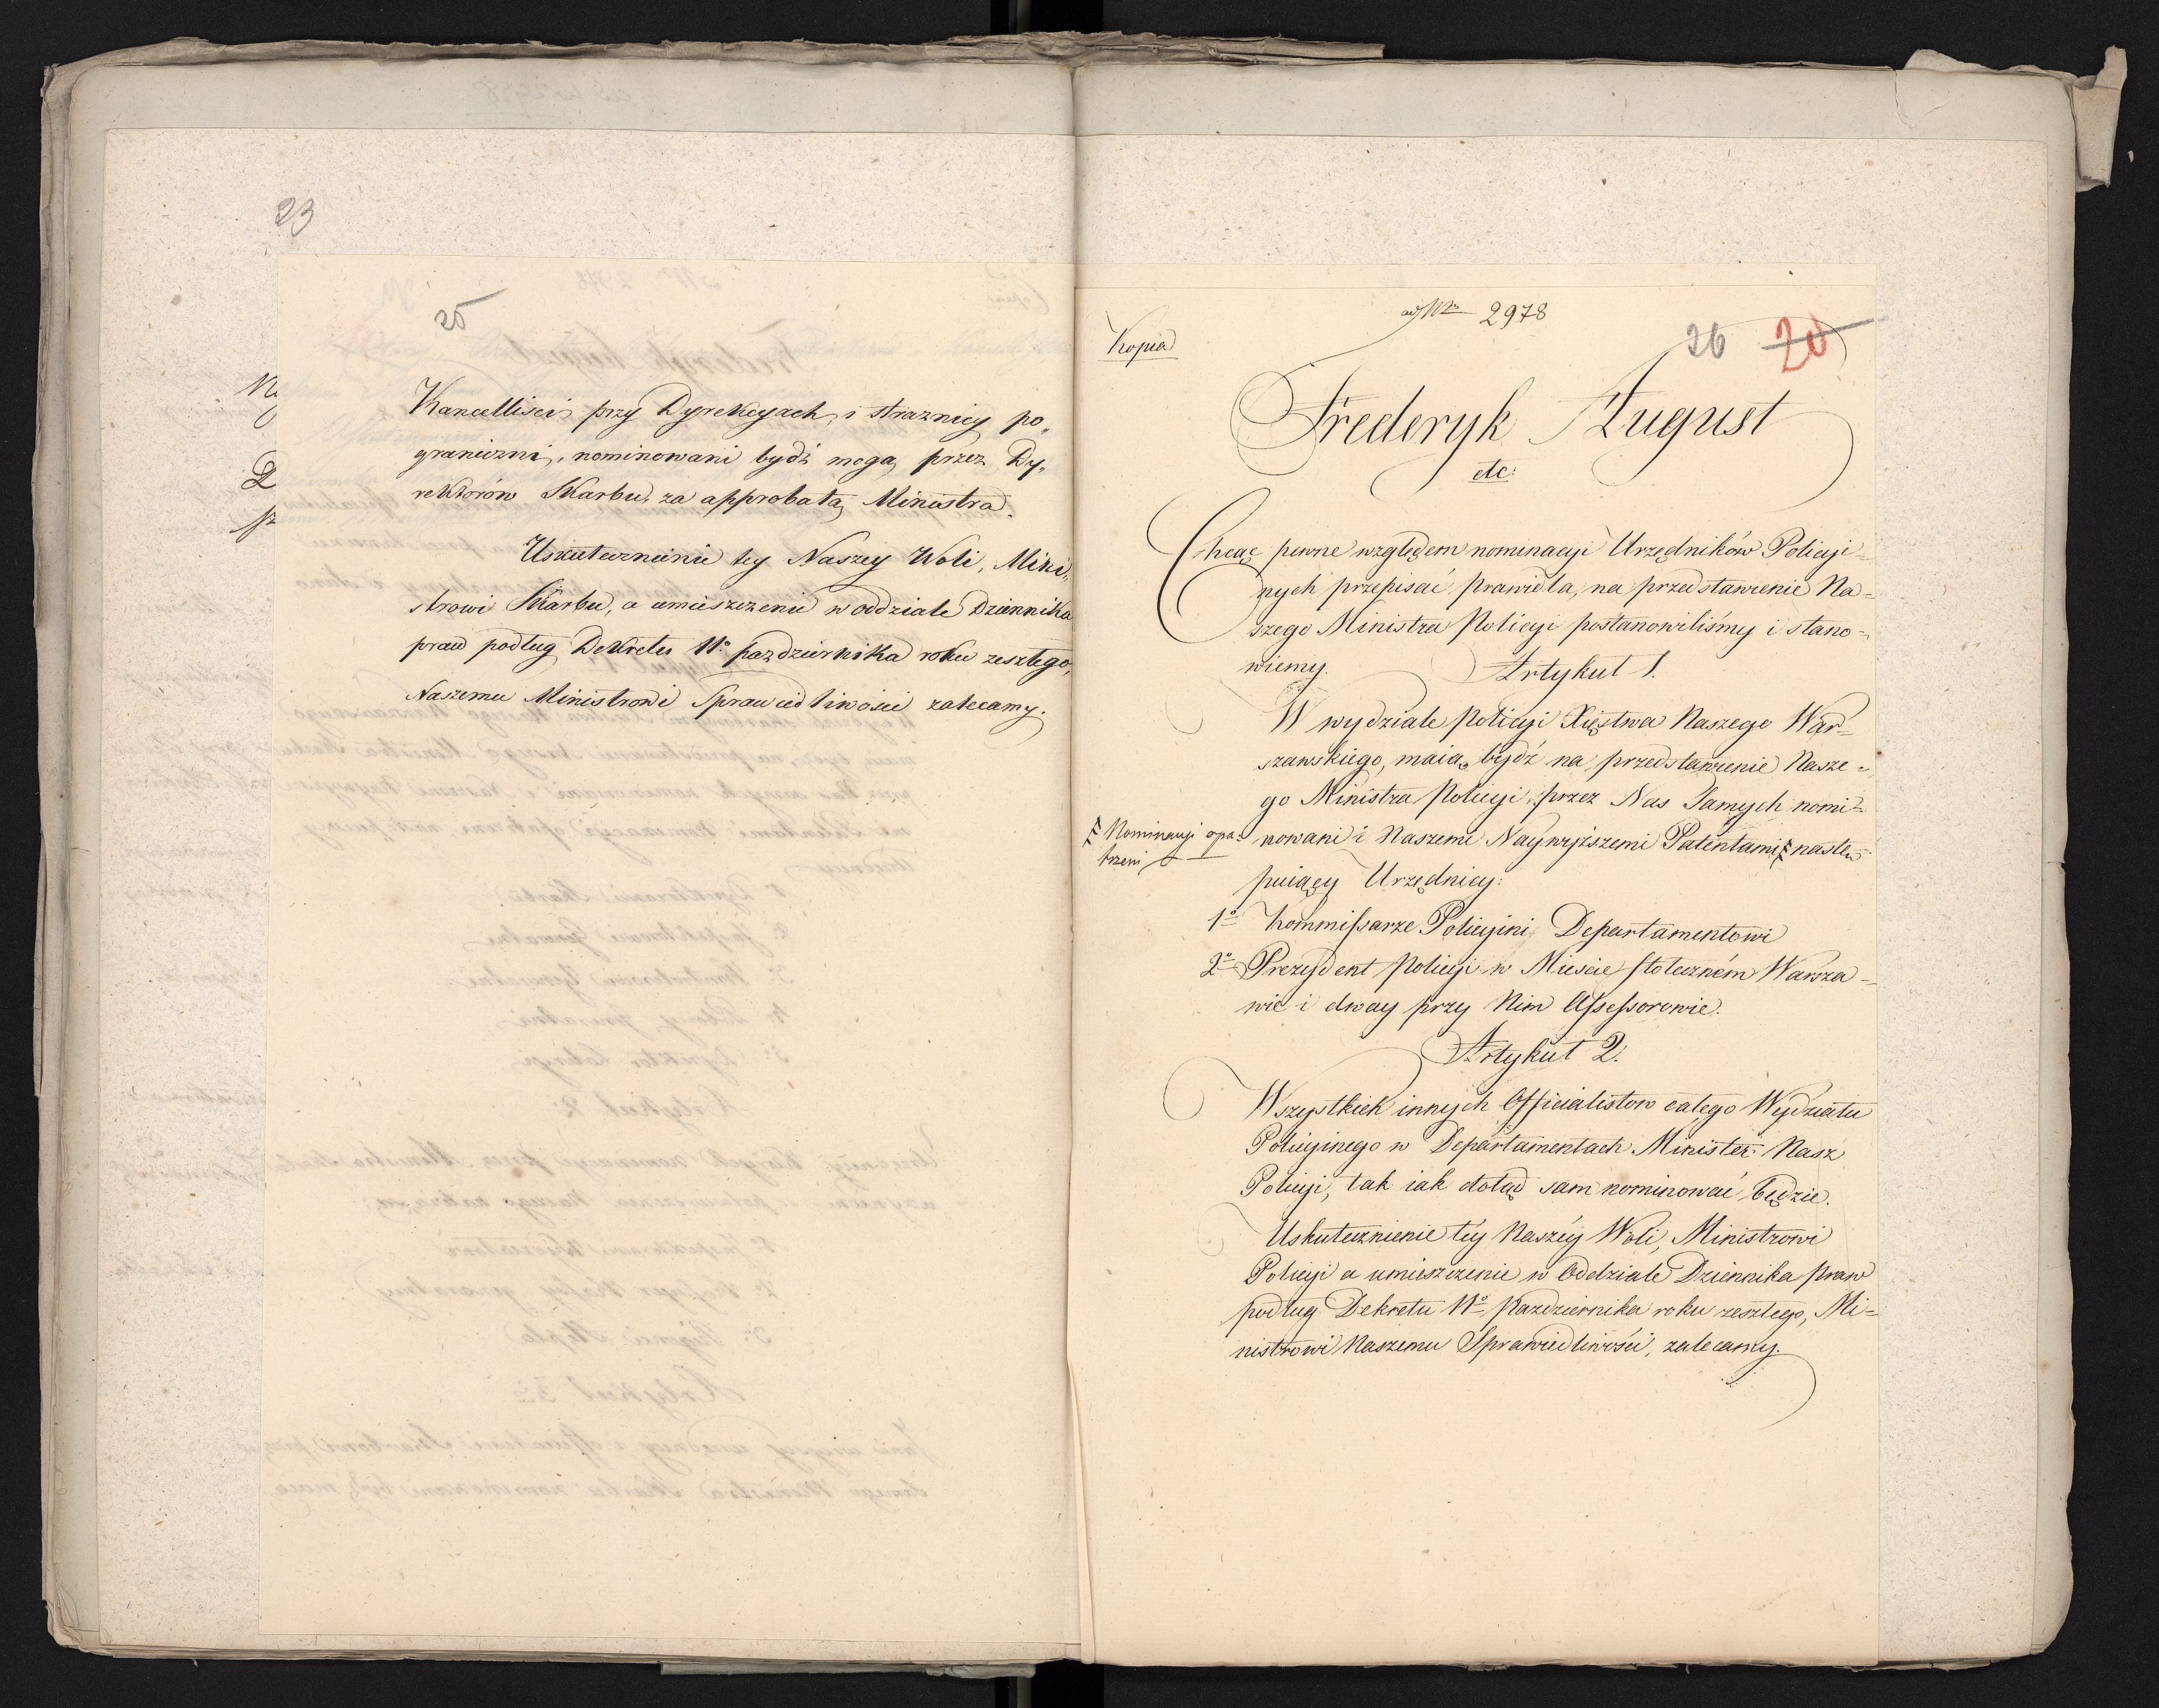 23
25
Kancelliści przy Dyrekcyach, i strażnicy po„
graniczni, nominowani bydź mogą, przez Dy„
rektorów Skarbu, za approbatą Ministra.
Uskutecznienie tey Naszey Woli, Mini„
strowi Skarbu, a umieszczenie w oddziale Dziennika
praw podług Dekretu 11o października roku zeszłego,
Naszemu Ministrowi Sprawiedliwości zalecamy.
ad Nrm 2978
Kopia
26 20
Frederyk August
etc:
Chcąc pewne względem nominacyi Urzędników Policyi=
nych przepisać prawidła, na przedstawienie Na=
szego Ministra Policyi postanowiliśmy i stano=
wiemy. Artykuł 1.
W wydziale Policyi Xięstwa Naszego War=
szawskiego, maią bydź na przedstawienie Nasze=
go Ministra Policyi, przez Nas Samych nomi=
Nominacyi opa: nowani i Naszemi Naywyższemi Patentami nastę=
trzeni
puiący Urzędnicy:
1o Kommissarze Policyini Departamentowi
2o Prezydent Policyi w Mieście Stołeczném Warsza=
wie i dway przy Nim Assessorowie.
Artykuł 2.
Wszystkich innych Officialistow całego Wydziału
Policyinego w Departamentach Minister Nasz
Policyi, tak iak dotąd sam nominować będzie.
Uskutecznienie téy Naszéy Woli, Ministrowi
Policyi a umieszczenie w Oddziale Dziennika praw
podług Dekretu 11o Października roku zeszłego, Mi=
nistrowi Naszemu Sprawiedliwości, zalecamy.